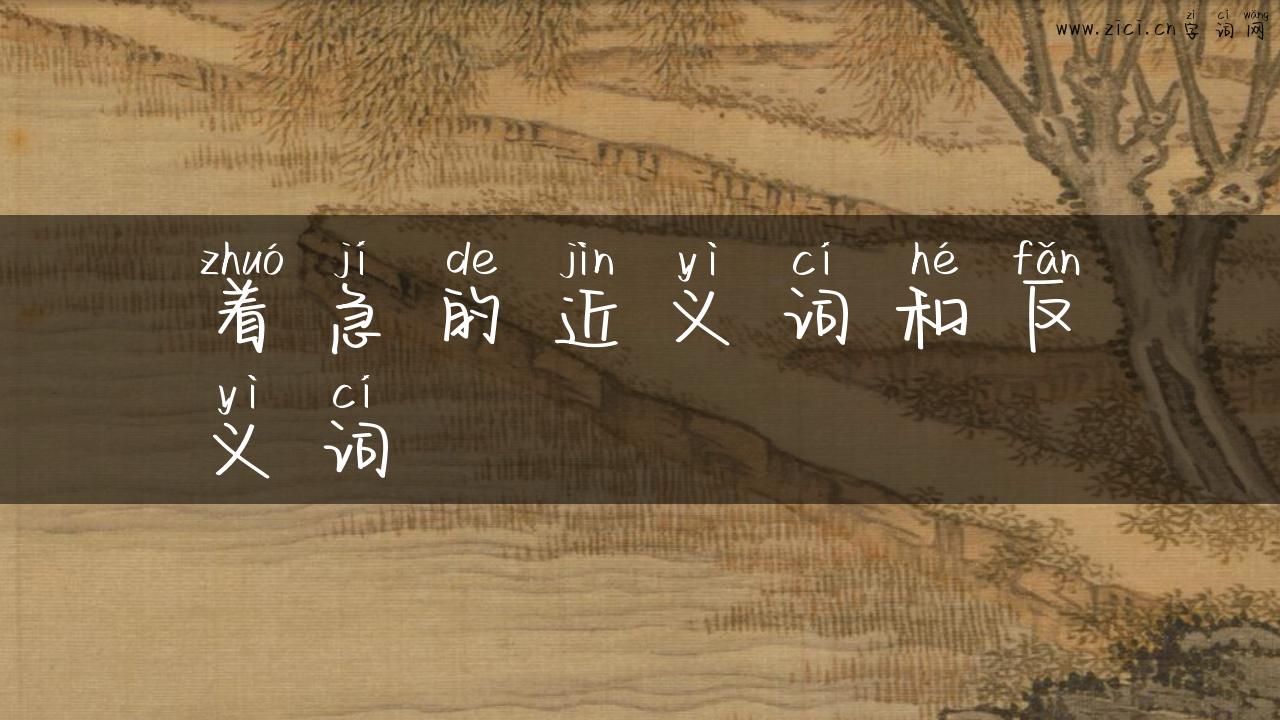 zì cí wǎng
www.zici.cn字词网
zhuó jí de jìn yì cí hé fǎn
着急的近义词和反
yì cí
义词